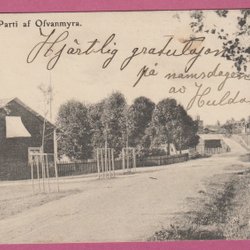 Parti af Ofvanmyra.
Hjärtlig gratulation
på namsdagen
av Hulda